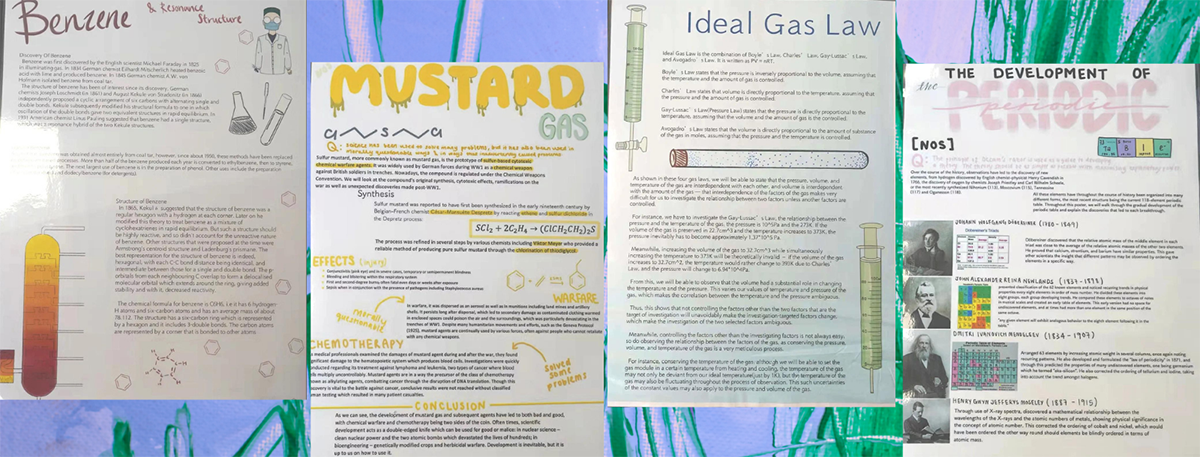 Benzene
& Resonance
Structure
Discovery Of Benzene
Benzene was first discovered by the English scientist Michael Faraday in 1825
in illuminating gas. In 1834 German chemist Eilhardt Mitscherlich heated benzoic
acid with lime and produced benzene. In 1845 German chemist A.W. von
Hofmann isolated benzene from coal tar.
The structure of benzene has been of interest since its discovery. German
chemists Joseph Loschmidt (in 1861) and August Kekulé von Stradonitz (in 1866)
independently proposed a cyclic arrangement of six carbons with alternating single and
double bonds. Kekule subsequently modified his structural formula to one in which
oscillation of the double bonds gave two equivalent structures in rapid equilibrium. In
1931 American chemist Linus Pauling suggested that benzene had a single structure,
which was a resonance hybrid of the two Kekule structures.
was obtained almost entirely from coal tar; however, since about 1950, these methods have been replaced
processes. More than half of the benzene produced each year is converted to ethylbenzene, then to styrene
The next largest use of benzene is in the preparation of phenol. Other uses include the preparation
and dodecylbenzene (for detergents).
Structure of Benzene
In 1865, Kekulé suggested that the structure of benzene was a
regular hexagon with a hydrogen at each corner. Later on he
modified this theory to treat benzene as a mixture of
cyclohexatrienes in rapid equilibrium. But such a structure should
be highly reactive, and so didn't account for the unreactive nature
of benzene. Other structures that were proposed at the time were
Armstrong's centroid structure and Ladenburg's prismane. The
best representation for the structure of benzene is indeed,
hexagonal, with each C-C bond distance being identical, and
intermediate between those for a single and double bond. The p-
orbitals from each neighbouring C overlap to form a delocalised
molecular orbital which extends around the ring, giving added
stability and with it, decreased reactivity.
The chemical formula for benzene is C6H6, i.e it has 6 hydrogen-
H atoms and six-carbon atoms and has an average mass of about
78.112. The structure has a six-carbon ring which is represented
by a hexagon and it includes 3-double bonds. The carbon atoms
are represented by a corner that is bonded to other atoms.
MUSTARD
GAS
Cl
S
Cl
Q: Science has been used to solve many problems, but it has also been used in
Sulfur mustard, more commonly known as mustard gas, is the prototype of sulfur-based cytotoxic
chemical warfare agents. It was widely used by German forces during WW1 as a chemical weapon
against British soldiers in trenches. Nowadays, the compound is regulated under the Chemical Weapons
Convention. We will look at the compound's original synthesis, cytotoxic effects, ramifications on the
war as well as unexpected discoveries made post-WW1.
Synthesis
Sulfur mustard was reported to have first been synthesized in the early nineteenth century by
Belgian-French chemist César-Mansuète Despretz by reacting ethene and sulfur dichloride in
the Depretz process:
SCl2 + 2C2H4 → (ClCH2CH2)2S
The process was refined in several steps by various chemists including Viktor Meyer who provided a
reliable method of producing pure sulfur mustard through the chlorination of thiodiglycol.
EFFECTS (injury)
Conjunctivitis (pink eye) and in severe cases, temporary or semipermanent blindness
Bleeding and blistering within the respiratory system
First and second degree burns, often fatal even days or weeks after exposure
Sepsis when in conjunction with the presence of pathogens including Staphylococcus aureus
WARFARE
In warfare, it was dispersed as an aerosol as well as in munitions including land mines and artillery
shells. It persists long after dispersal, which led to secondary damage as contaminated clothing warmed
in enclosed spaces could poison the air and the surroundings, which was particularly devastating in the
trenches of WW1. Despite many humanitarian movements and efforts, such as the Geneva Protocol
(1925), mustard agents are continually used by various forces, often against people who cannot retaliate
with any chemical weapons.
morally
questionable
CHEMOTHERAPY
As medical professionals examined the damages of mustard agent during and after the war, they found
significant damage to the hematopoietic system which produces blood cells. Investigations were quickly
conducted regarding its treatment against lymphoma and leukemia, two types of cancer where blood
cells multiply uncontrollably. Mustard agents are in a way the precursor of the class of chemotherapy
known as alkylating agents, combating cancer through the disruption of DNA translation. Though this
discovery is vital to the battle against cancer, conclusive results were not reached without classified
human testing which resulted in many patient casualties.
solved
some
problems
CONCLUSION
As we can see, the development of mustard gas and subsequent agents have led to both bad and good,
with chemical warfare and chemotherapy being two sides of the coin. Often times, scientific
development acts as a double-edged knife which can be used for good or malice: in nuclear science -
clean nuclear power and the two atomic bombs which devastated the lives of hundreds; in
bioengineering - genetically modified crops and herbicidal warfare. Development is inevitable, but it is
up to us on how to use it.
Ideal Gas Law
Ideal Gas Law is the combination of Boyle's Law, Charles' Law, Gay-Lussac's Law,
and Avogadro's Law. It is written as PV = nRT.
Boyle's Law states that the pressure is inversely proportional to the volume, assuming that
the temperature and the amount of gas is controlled.
Charles' Law states that volume is directly proportional to the temperature, assuming that
the pressure and the amount of gas is controlled.
Gay-Lussac's Law(Pressure Law) states that the pressure is directly proportional to the
temperature, assuming that the volume and the amount of gas is controlled.
Avogadro's Law states that the volume is directly proportional to the amount of substance
of the gas in moles, assuming that the pressure and the temperature is controlled.
As shown in these four gas laws, we can observe that the pressure, volume, and
temperature of the gas are interdependent with each other, and volume is interdependent
with the amount of the gas — that interdependence of the factors of the gas makes very
difficult for us to investigate the relationship between two factors unless another factors are
controlled.
For instance, we have to investigate the Gay-Lussac's Law, the relationship between the
pressure and the temperature of the gas; the pressure is 10⁵Pa and the 273K. If the
volume of the gas is preserved in 22.7cm^3 and the temperature increases to 373K, the
pressure inevitably has to become approximately 1.37*10^5 Pa.
Meanwhile, increasing the volume of the gas to 32.7cm^3 while simultaneously
increasing the temperature to 373K will be theoretically invalid — if the volume of the gas
increases to 32.7cm^3, the temperature would rather change to 393K due to Charles'
Law, and the pressure will change to 6.94*10^4Pa.
From this, we will be able to observe that the volume had a substantial role in changing
the temperature and the pressure. This varies our values of temperature and pressure of the
gas, which makes the correlation between the temperature and the pressure ambiguous.
Thus, this shows that not controlling the factors other than the two factors that are the
target of investigation will unavoidably make the investigation-targeted factors change,
which make the investigation of the two selected factors ambiguous.
Meanwhile, controlling the factors other than the investigating factors is not always easy,
so do observing the relationship between the factors of the gas, as conserving the pressure,
volume, and temperature of the gas is a very meticulous process.
For instance, conserving the temperature of the gas: although we will be able to set the
gas module in a certain temperature from heating and cooling, the temperature of the gas
may not only be deviant from our ideal temperature(just by 1K), but the temperature of the
gas may also be fluctuating throughout the process of observation. This such uncertainties
of the constant values may also apply to the pressure and volume of the gas.
THE DEVELOPMENT OF
the
PERIODIC
periodic
[NOS]
Over the course of the history, observations have led to the discovery of new
elements, from hydrogen discovered by English chemist-physicist Henry Cavendish in
1766, the discovery of oxygen by chemists Joseph Priestley and Carl Wilhelm Scheele,
or the most recently synthesized Nihonium (113), Moscovium (115), Tennessine
(117) and Oganesson (118).
All these elements have throughout the course of history been organized into many
different forms, the most recent structure being the current 118-element periodic
table. Throughout this poster, we will walk through the gradual development of the
periodic table and explain the discoveries that led to each breakthrough.
JOHANN WOLFGANG DÖBEREINER (1780 - 1849)
Döbereiner discovered that the relative atomic mass of the middle element in each
triad was close to the average of the relative atomic masses of the other two elements.
He proved that calcium, strontium, and barium have similar properties. This gave
other scientists the insight that different patterns may be discovered by ordering the
elements in a specific way.
JOHN ALEXANDER REINA NEWLANDS (1837 - 1898)
"any given element will exhibit analogous behavior to the eighth element following it in the
table."
DMITRI IVANOVICH MENDELEEV (1834 - 1907)
Arranged 63 elements by increasing atomic weight in several columns, once again noting
recurring patterns. He also developed and formulated the "law of periodicity" in 1871, and
through this predicted the properties of many undiscovered elements, one being germanium
which he termed "eka-silicon". He also corrected the ordering of tellurium and iodine, taking
into account the trend amongst halogens.
HENRY GWYN JEFFREYS MOSELEY (1887 - 1915)
Through use of X-ray spectra, discovered a mathematical relationship between the
wavelengths of the X-rays and the atomic numbers of metals, showing physical significance in
the concept of atomic number. This corrected the ordering of cobalt and nickel, which would
have been ordered the other way round should elements be blindly ordered in terms of
atomic mass.